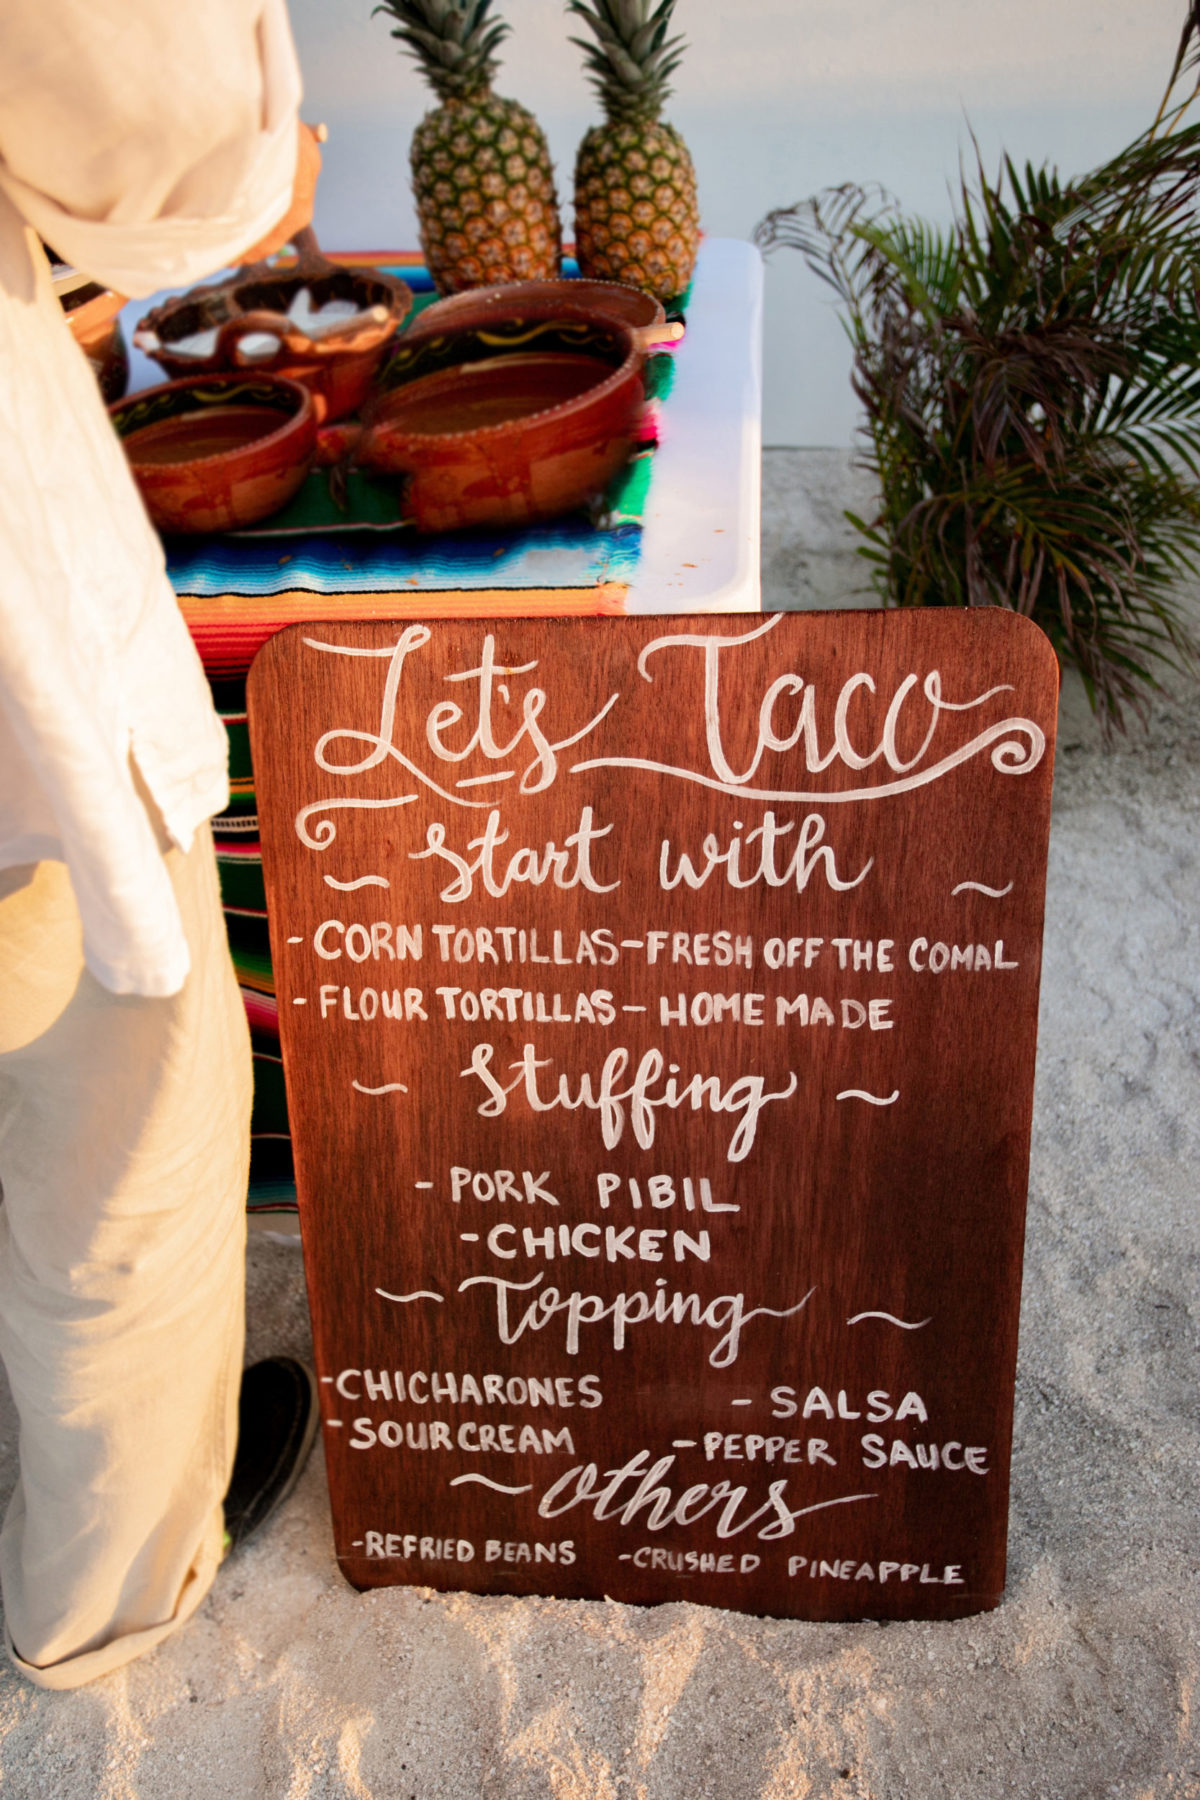 Let's Taco
start with
- CORN TORTILLAS - FRESH OFF THE COMAL
- FLOUR TORTILLAS - HOME MADE
~ Stuffing ~
- PORK PIBIL
- CHICKEN
~ Topping ~
- CHICHARONES - SALSA
- SOUR CREAM - PEPPER SAUCE
~ others
- REFRIED BEANS - CRUSHED PINEAPPLE